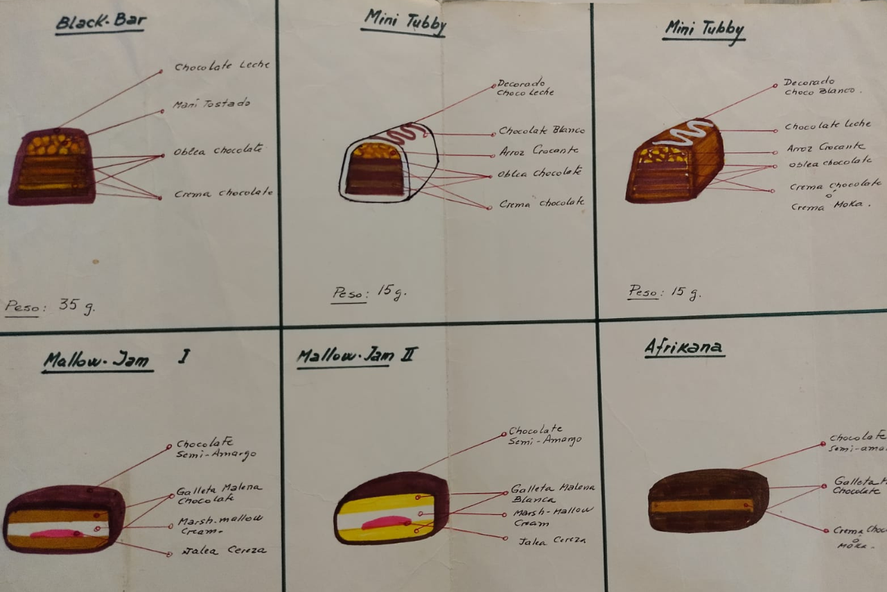 Black-Bar
Chocolate Leche
Mani Tostado
Oblea Chocolate
Crema Chocolate
Peso: 35 g.
Mini Tubby
Decorado
Choco Leche
Chocolate Blanco
Arroz Crocante
Oblea Chocolate
Crema Chocolate
Peso: 15 g.
Mini Tubby
Decorado
Choco Blanco.
Chocolate Leche
Arroz Crocante
Oblea chocolate
Crema Chocolate
o'
Crema Moka.
Peso: 15 g.
Mallow-Jam I
Chocolate
Semi-Amargo
Galleta Malena
Chocolate
Marsh.mallow
Cream-
Jalea Cereza
Mallow-Jam II
Chocolate
Semi-Amargo
Galleta Malena
Blanca
Marsh-Mallow
Cream
Jalea Cereza
Afrikana
Chocolate
Semi-ama
Galleta
Chocolate
Crema Choc
o
Moka.